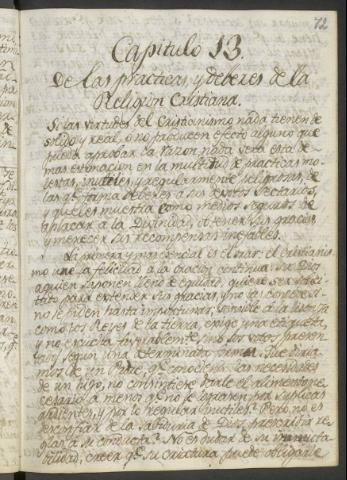 72
Capitulo 13.
De las practicas y deberes de la
Religion Cristiana.
Si las virtudes del Cristianismo nada tienen de
solido y real, o no producen efecto alguno que
pueda aprobar la razon, nada verá esta de
mas estimacion en la multitud de practicas mo-
lestas, inutiles, y regularmente peligrosas, de
las q̃ forma deberes a sus devotos sectarios,
y que les muestra como medios seguros de
aplacar a la Divinidad, obtener sus gracias,
y merecer sus recompensas inefables.
La primera y mas esencial es el orar: el Cristianis-
mo une la felicidad a la oracion continua. Su Dios
a quien suponen lleno de equidad, quiere ser solici-
tado para extender sus gracias, y no las concede si-
no le piden hasta importunar; sensible a la lisonja
como los Reyes de la tierra, exige una etiqueta,
y no escucha favorablemente sino los votos presen-
tados segun una determinada forma. Que diria-
mos de un Padre, q̃ conociendo las necesidades
de un hijo, no consintiese darle el alimento ne-
cesario a menor q̃ no se lo pidiesen por suplicas
ardientes, y por lo regular inutiles? Pero, no es
desconfiar de la Sabiduria de Dios prescribir re-
glas a su conducta? No es dudar de su inmuta-
bilidad, creer q̃ su criatura puede obligarle